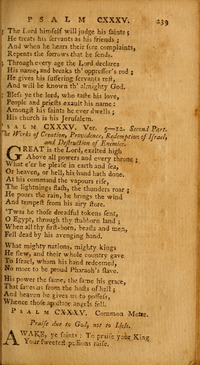 PSALM CXXXV. 239
The Lord himself will judge his saints;
He treats his servants as his friends;
And when he hears their sore complaints,
Repents the sorrows that he sends.
Through every age the Lord declares
His name, and breaks th' oppressor's rod;
He gives his suffering servants rest,
And will be known th' almighty God.
Bless ye the lord, who taste his love,
People and priests exalt his name:
Amongst his saints he ever dwells;
His church is his Jerusalem.
PSALM CXXXV. Ver. 5—12. Second Part.
The Works of Creation, Providence, Redemption of Israel,
and Destruction of Enemies.
GREAT is the Lord, exalted high
Above all powers and every throne;
What e'er he please in earth and sea,
Or heaven, or hell, his hand hath done.
At his command the vapours rise,
The lightnings flash, the thunders roar;
He pours the rain, he brings the wind
And tempest from his airy store.
'Twas he those dreadful tokens sent,
O Egypt, through thy stubborn land;
When all thy first-born, beasts and men,
Fell dead by his avenging hand.
What mighty nations, mighty kings
He slew, and their whole country gave
To Israel, whom his hand redeemed,
No more to be proud Pharaoh's slave.
His power the same, the same his grace,
That saves us from the hosts of hell;
And heaven he gives us to possess,
Whence those apostate angels fell.
PSALM CXXXV. Common Metre.
Praise due to God, not to Idols.
AWAKE, ye saints: To praise your King
Your sweetest passions raise.